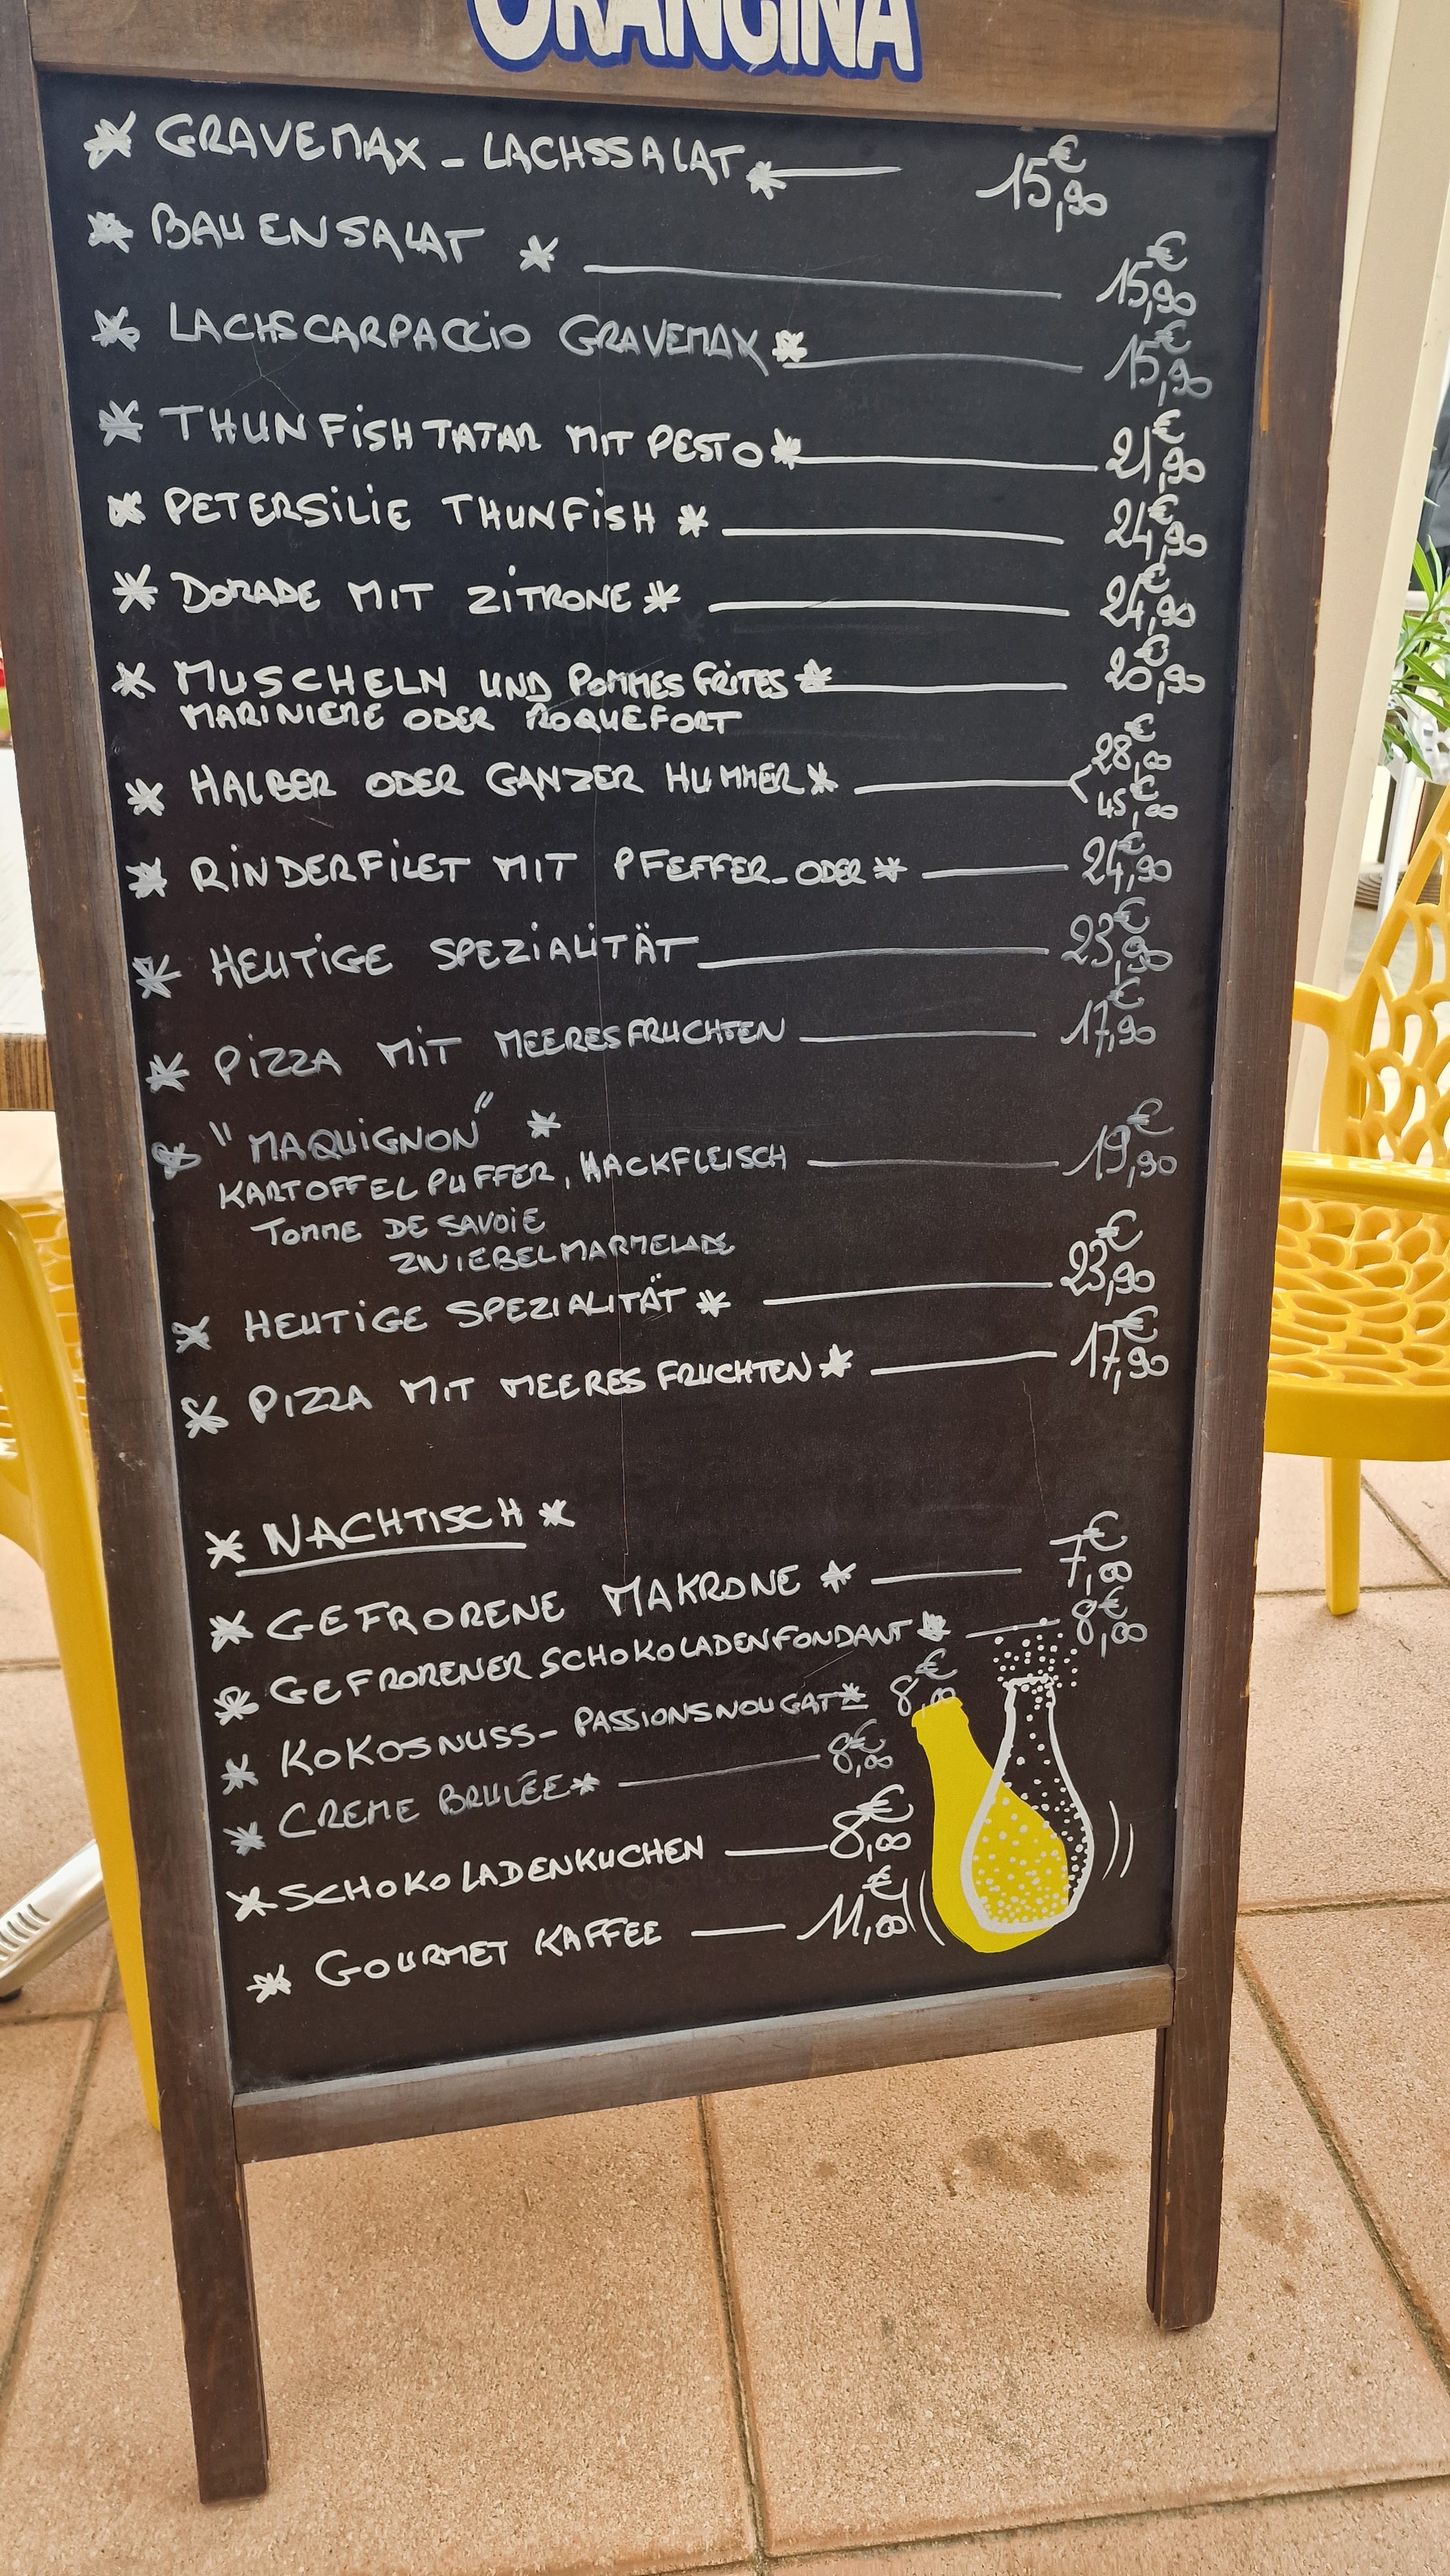 ORANGINA
* GRAVEMAX - LACHSSALAT * 15,90€
* BAUENSALAT * 15,90€
* LACHSCARPACCIO GRAVEMAX * 15,90€
* THUNFISHTATAR MIT PESTO * 21,90€
* PETERSILIE THUNFISH * 24,90€
* DORADE MIT ZITRONE * 24,90€
* MUSCHELN UND POMMES FRITES * 20,90€
MARINIERE ODER ROQUEFORT
* HALBER ODER GANZER HUMMER * 28,00€
45,00€
* RINDERFILET MIT PFEFFER-ODER * 24,90€
* HEUTIGE SPEZIALITÄT 23,90€
* PIZZA MIT MEERESFRUCHTEN 17,90€
* "MAQUIGNON" *
KARTOFFELPUFFER, HACKFLEISCH 19,90€
TOMME DE SAVOIE
ZWIEBELMARMELADE
* HEUTIGE SPEZIALITÄT * 23,90€
* PIZZA MIT MEERESFRUCHTEN * 17,90€
* NACHTISCH *
* GEFRORENE MAKRONE * 7,00€
* GEFRORENER SCHOKOLADENFONDANT * 8,00€
* KOKOSNUSS- PASSIONSNOUGAT * 8,00€
* CREME BRULÉE * 8,00€
* SCHOKOLADENKUCHEN 8,00€
* GOURMET KAFFEE 11,00€